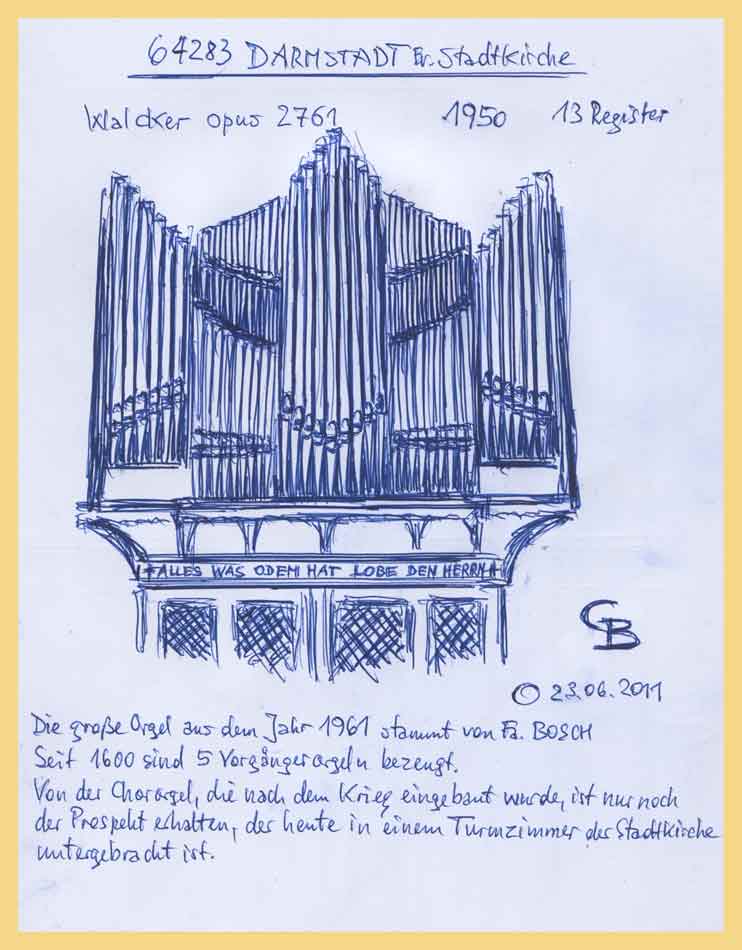 64283 DARMSTADT Ev. Stadtkirche
Walcker opus 2761 1950 13 Register
+ALLES WAS ODEM HAT LOBE DEN HERRN+
CB
© 23.06.2011
Die große Orgel aus dem Jahr 1961 stammt von Fa. BOSCH
Seit 1600 sind 5 Vorgängerorgeln bezeugt.
Von der Chororgel, die nach dem Krieg eingebaut wurde, ist nur noch
der Prospekt erhalten, der heute in einem Turmzimmer der Stadtkirche
untergebracht ist.